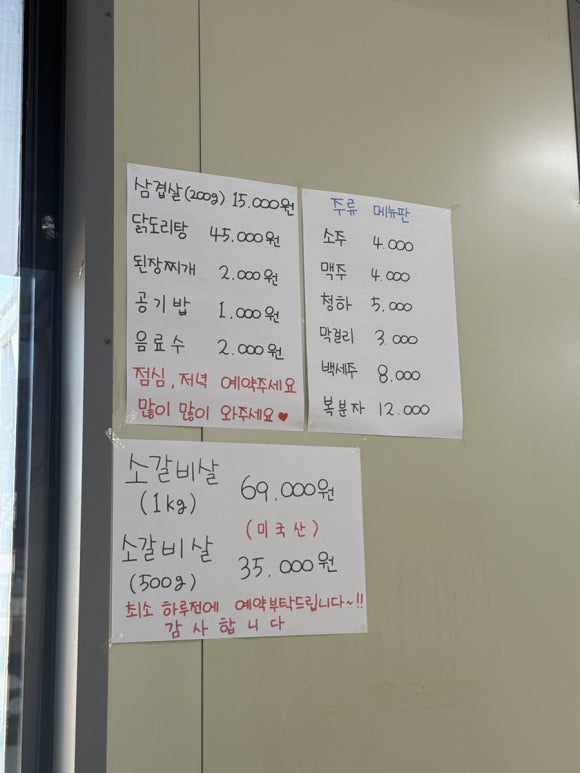 삼겹살(200g) 15.000원
닭도리탕 45.000원
된장찌개 2.000원
공기밥 1.000원
음료수 2.000원
점심, 저녁 예약주세요
많이 많이 와주세요♥
주류 메뉴판
소주 4.000
맥주 4.000
청하 5.000
막걸리 3.000
백세주 8.000
복분자 12.000
소갈비살
(1kg) 69.000원
(미국산)
소갈비살
(500g) 35.000원
최소 하루전에 예약부탁드립니다~!!
감사합니다